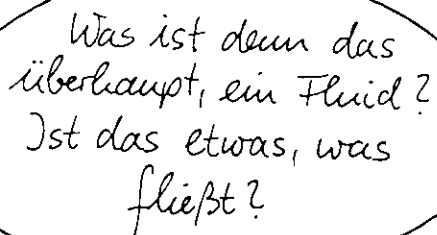 Was ist denn das
überhaupt, ein Fluid?
Ist das etwas, was
fließt?